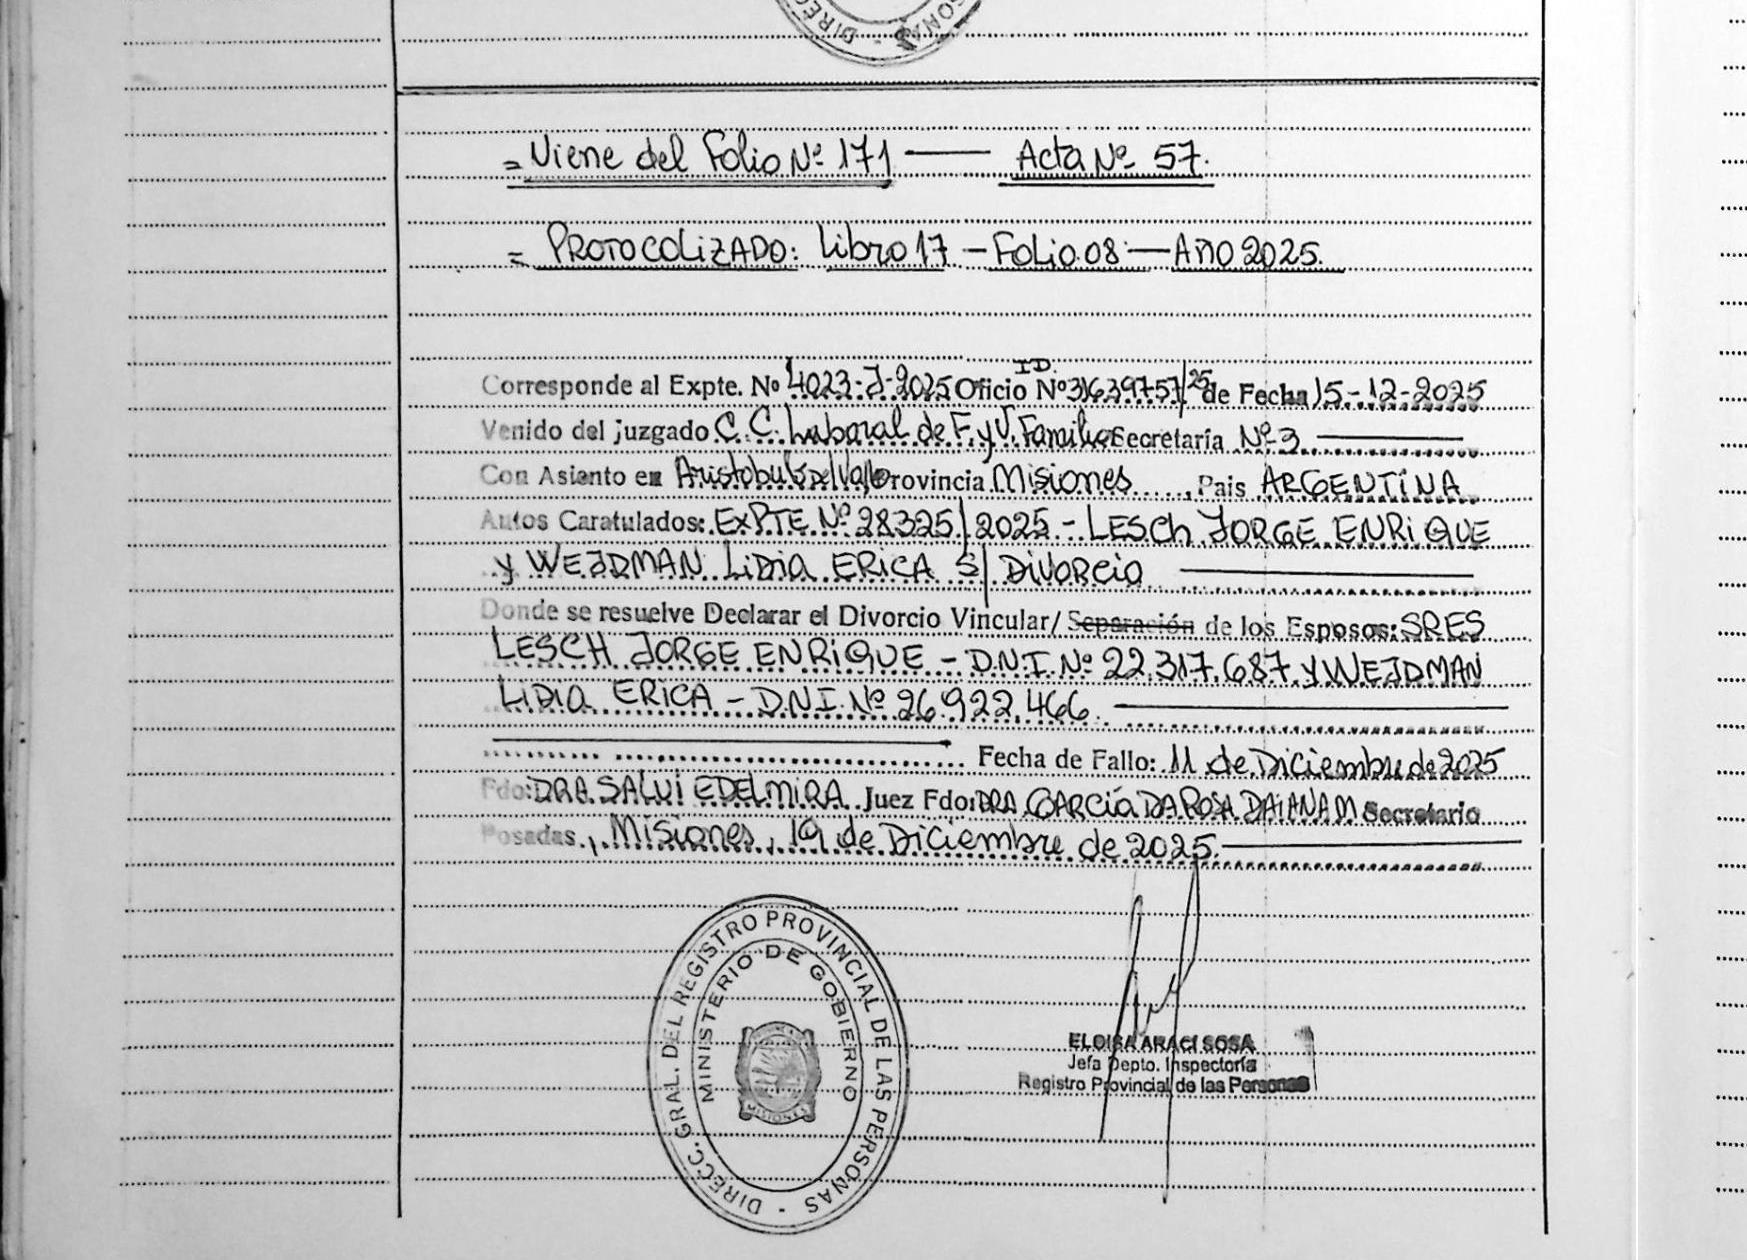 DIREC SONAS
= Viene del Folio Nº 171 — Acta Nº 57.
= PROTOCOLIZADO: Libro 17 - Folio 08 - Año 2025.
Corresponde al Expte. Nº 4023-J-2025 Oficio ID. Nº 31639757/25 de Fecha 15-12-2025
Venido del Juzgado C. C. Laboral de F. y V. Familiar Secretaría Nº 3
Con Asiento en Aristobulo del Valle Provincia Misiones, Pais ARGENTINA
Autos Caratulados: EXPTE Nº 28325/2025 - LESCH JORGE ENRIQUE
y WEJDMAN LIDIA ERICA S/ Divorcio
Donde se resuelve Declarar el Divorcio Vincular/ Separación de los Esposos: SRES
LESCH JORGE ENRIQUE - D.N.I. Nº 22.317.687 y WEJDMAN
LIDIA ERICA - D.N.I. Nº 26.922.466.
Fecha de Fallo: 11 de Diciembre de 2025
Fdo: DRA. SALVI EDELMIRA Juez Fdo: DRA GARCÍA DA ROSA DAIANA M Secretario
Posadas, Misiones, 19 de Diciembre de 2025.
DIRECC. GRAL. DEL REGISTRO PROVINCIAL DE LAS PERSONAS -
MINISTERIO DE GOBIERNO
MISIONES
ELOISA ARACI SOSA
Jefa Depto. Inspectoría
Registro Provincial de las Personas